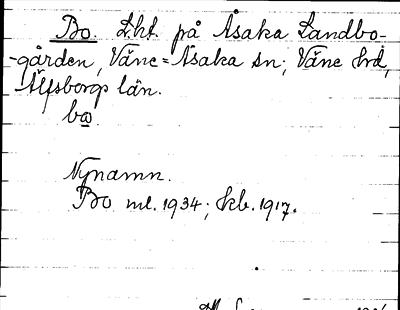 Bo. Lht. på Åsaka Landbo-
-gården, Väne=Åsaka sn; Väne hrd,
Älfsborgs län.
bo.
Nynamn.
Bo ml. 1934; kb. 1917.